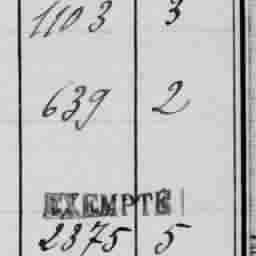 1103 3
639 2
EXEMPTÉ
2375 5